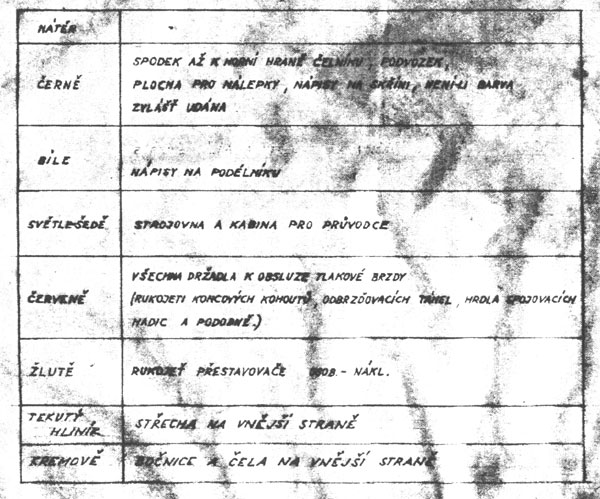 NÁTĚR
ČERNĚ
SPODEK AŽ K HORNÍ HRANĚ ČELNÍKU, PODVOZEK,
PLOCHA PRO NÁLEPKY, NÁPISY NA SKŘÍNI, NENÍ-LI BARVA
ZVLÁŠŤ UDÁNA
BÍLE
NÁPISY NA PODÉLNÍKU
SVĚTLE-ŠEDĚ
STROJOVNA A KABINA PRO PRŮVODCE
ČERVENĚ
VŠECHNA DRŽADLA K OBSLUZE TLAKOVÉ BRZDY
(RUKOJETI KONCOVÝCH KOHOUTŮ, ODBRZĎOVACÍCH TÁHEL, HRDLA SPOJOVACÍCH
HADIC A PODOBNĚ.)
ŽLUTĚ
RUKOJEŤ PŘESTAVOVAČE OSOB.- NÁKL.
TEKUTÝ
HLINÍK
STŘECHA NA VNĚJŠÍ STRANĚ
KREMOVĚ
BOČNICE A ČELA NA VNĚJŠÍ STRANĚ